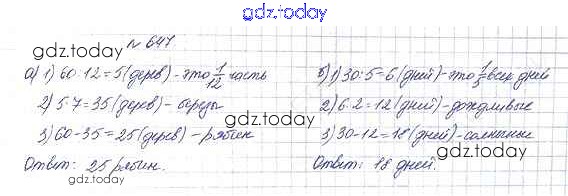 gdz.today
gdz.today
№ 647
а) 1) 60:12=5(дерев)-это 1/12 часть
2) 5·7=35(дерев)- березы
3) 60-35=25(дерев)- рябин
Ответ: 25 рябин.
gdz.today
б) 1) 30:5=6(дней)-это 1/5 всех дней
2) 6·2=12(дней)-дождливые
3) 30-12=18(дней)-солнечные
Ответ: 18 дней.
gdz.today
gdz.today